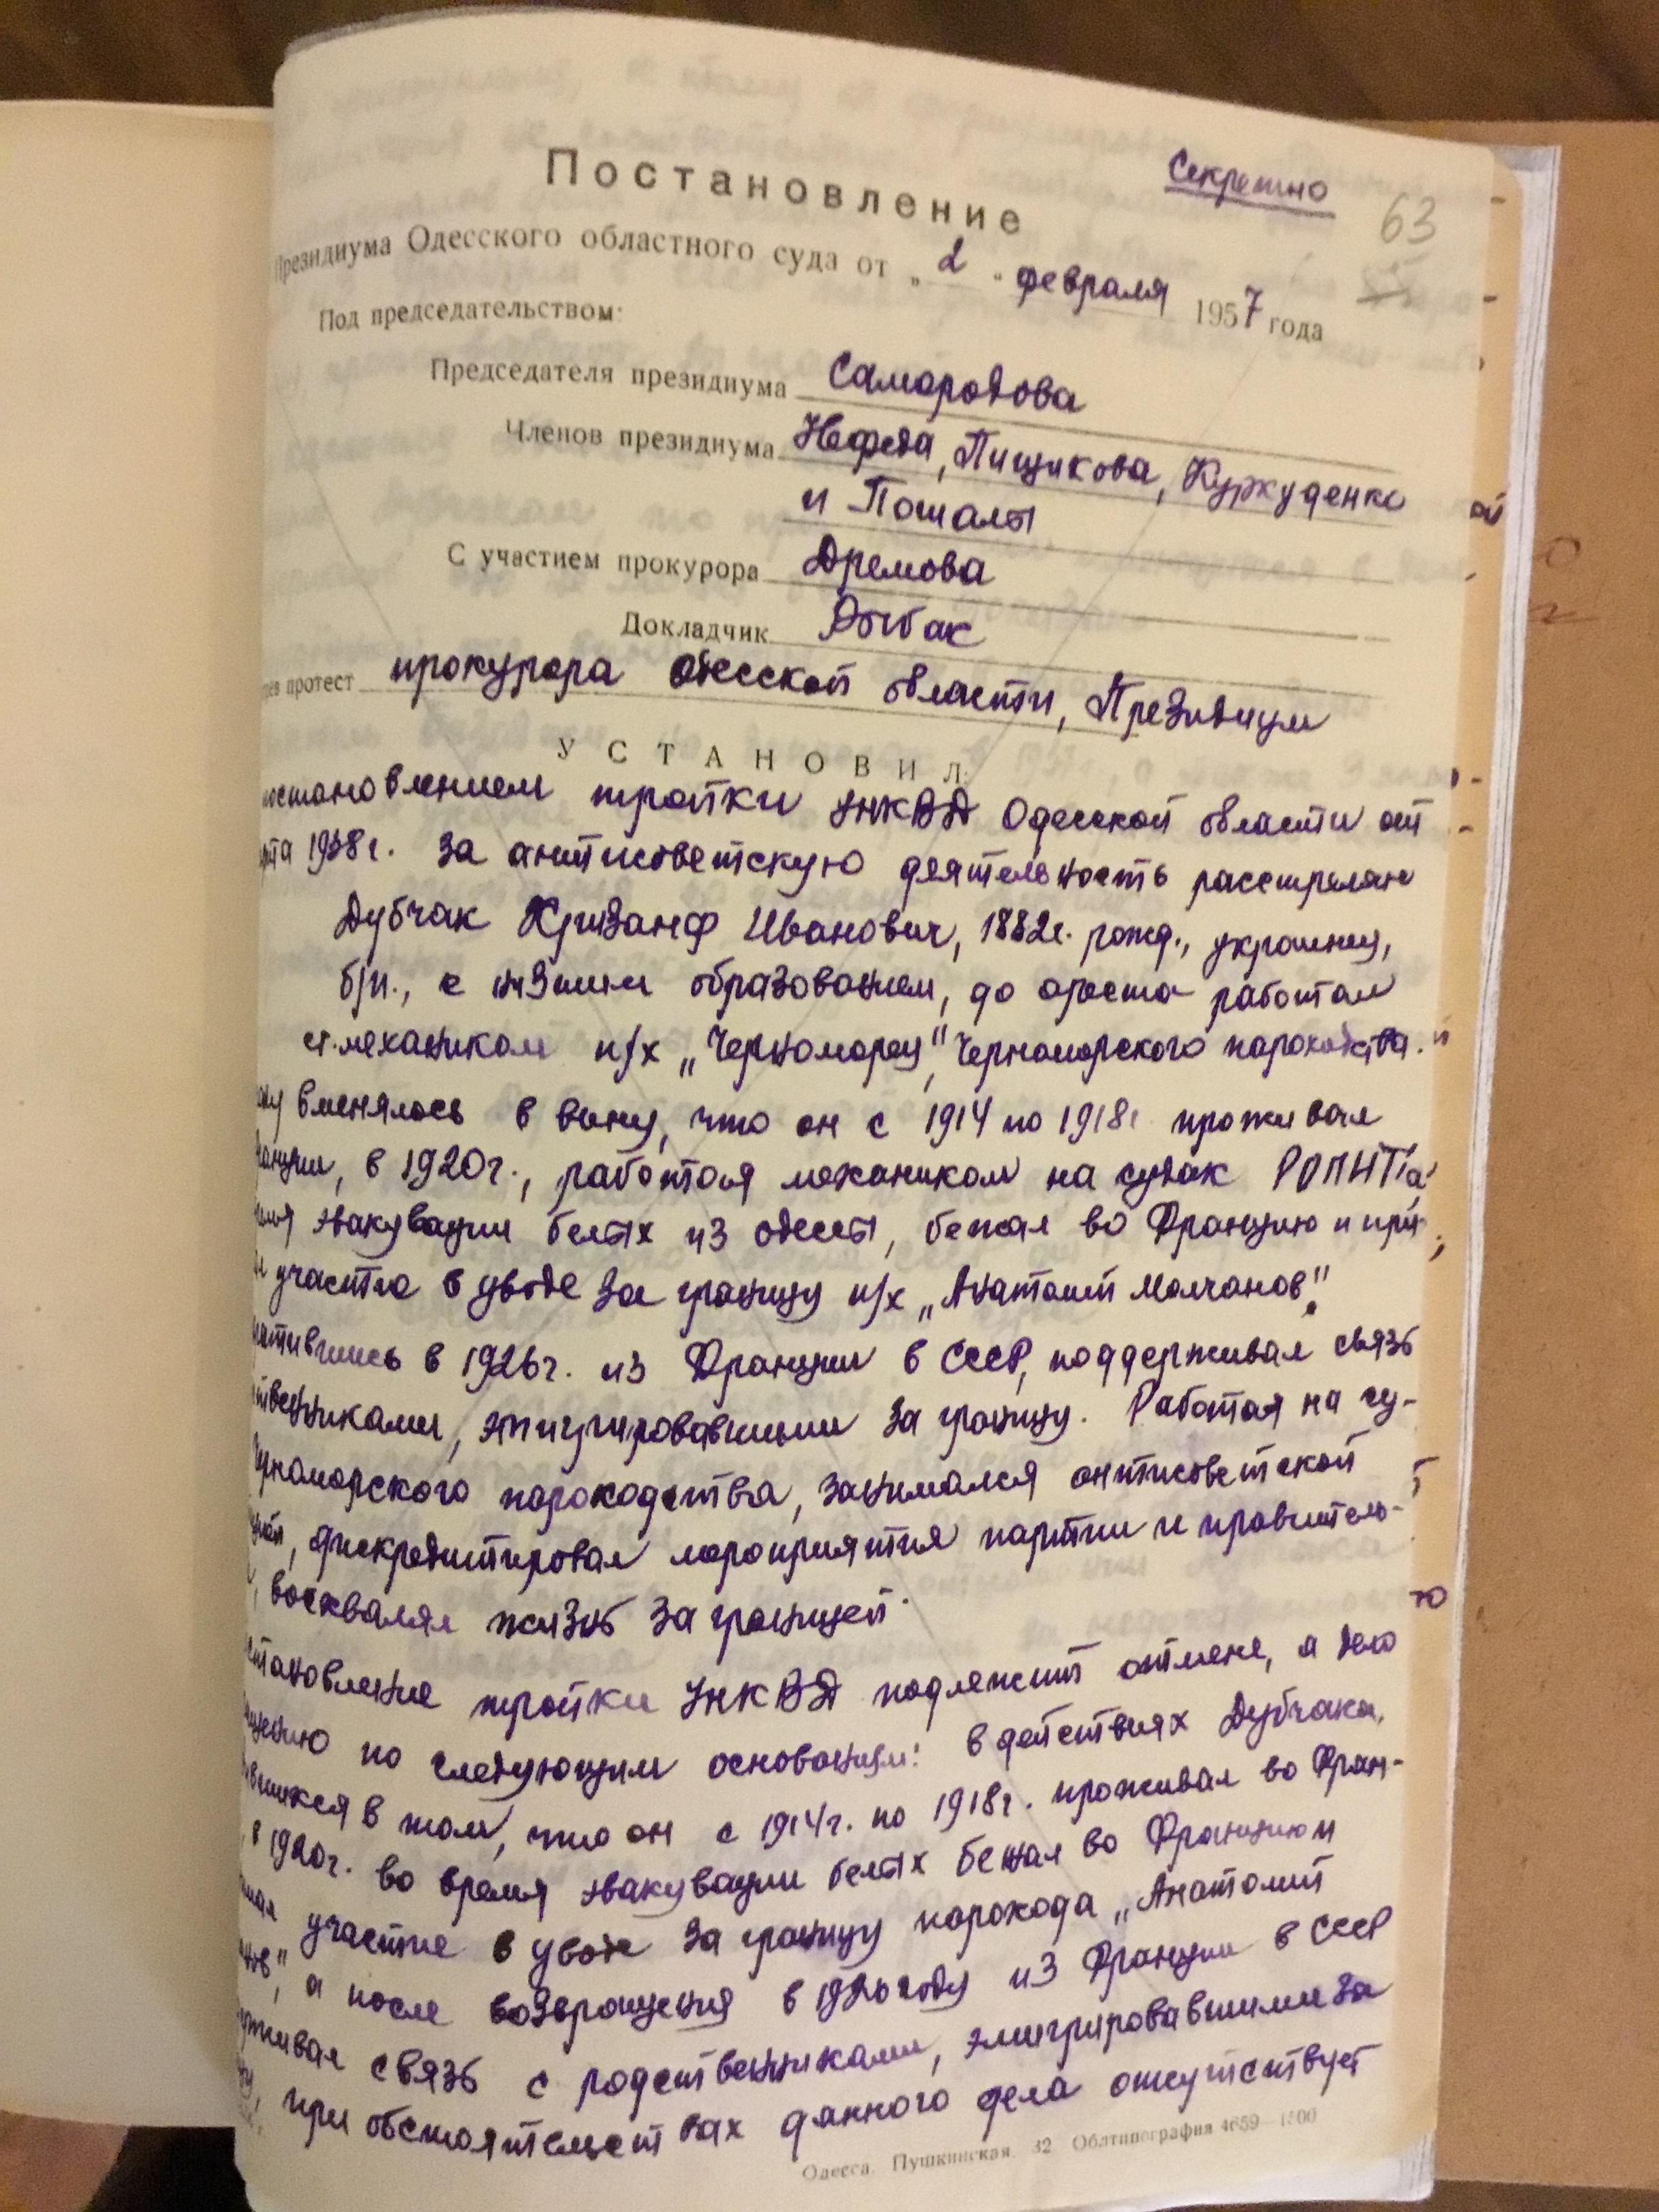 Секретно
63
Постановление
Президиума Одесского областного суда от „2“ февраля 1957 года
Под председательством:
Председателя президиума Самородова
Членов президиума Нефеда, Пищикова,
и
С участием прокурора Дремова
Докладчик Рыбак
протест прокурора Одесской области, Президиум
УСТАНОВИЛ:
постановлением тройки УНКВД Одесской области от
1938г. за антисоветскую деятельность расстрелян
Дубчак Кризанф Иванович, 1882г. рожд., украинец,
б/п., с низшим образованием, до ареста работал
ст.механиком п/х „Черноморец", Черноморского пароходства.
вменялось в вину, что он с 1914 по 1918г. проживал
в 1920г., работая механиком на судах РОПИТ'а
эвакуации белых из Одессы, бежал во Францию и при-
участие в уводе за границу п/х „Анатолий Молчанов".
в 1926г. из Франции в СССР, поддерживал связь
эмигрировавшими за границу. Работая на су-
Черноморского пароходства, занимался антисоветской
дискредитировал мероприятия партии и правитель-
восхвалял жизнь за границей.
тройки УНКВД подлежит отмене, а дело
по следующим основаниям: в действиях Дубчака,
в том, что он с 1914г. по 1918г. проживал во Фран-
в 1920г. во время эвакуации белых бежал во Францию и
участие в уводе за границу парохода „Анатолий
а после возвращения в 1926 году из Франции в СССР
связь с родственниками, эмигрировавшими за
при обстоятельствах данного дела отсутствует
Одесса, Пушкинская, 32 Облтипография 4659—1500